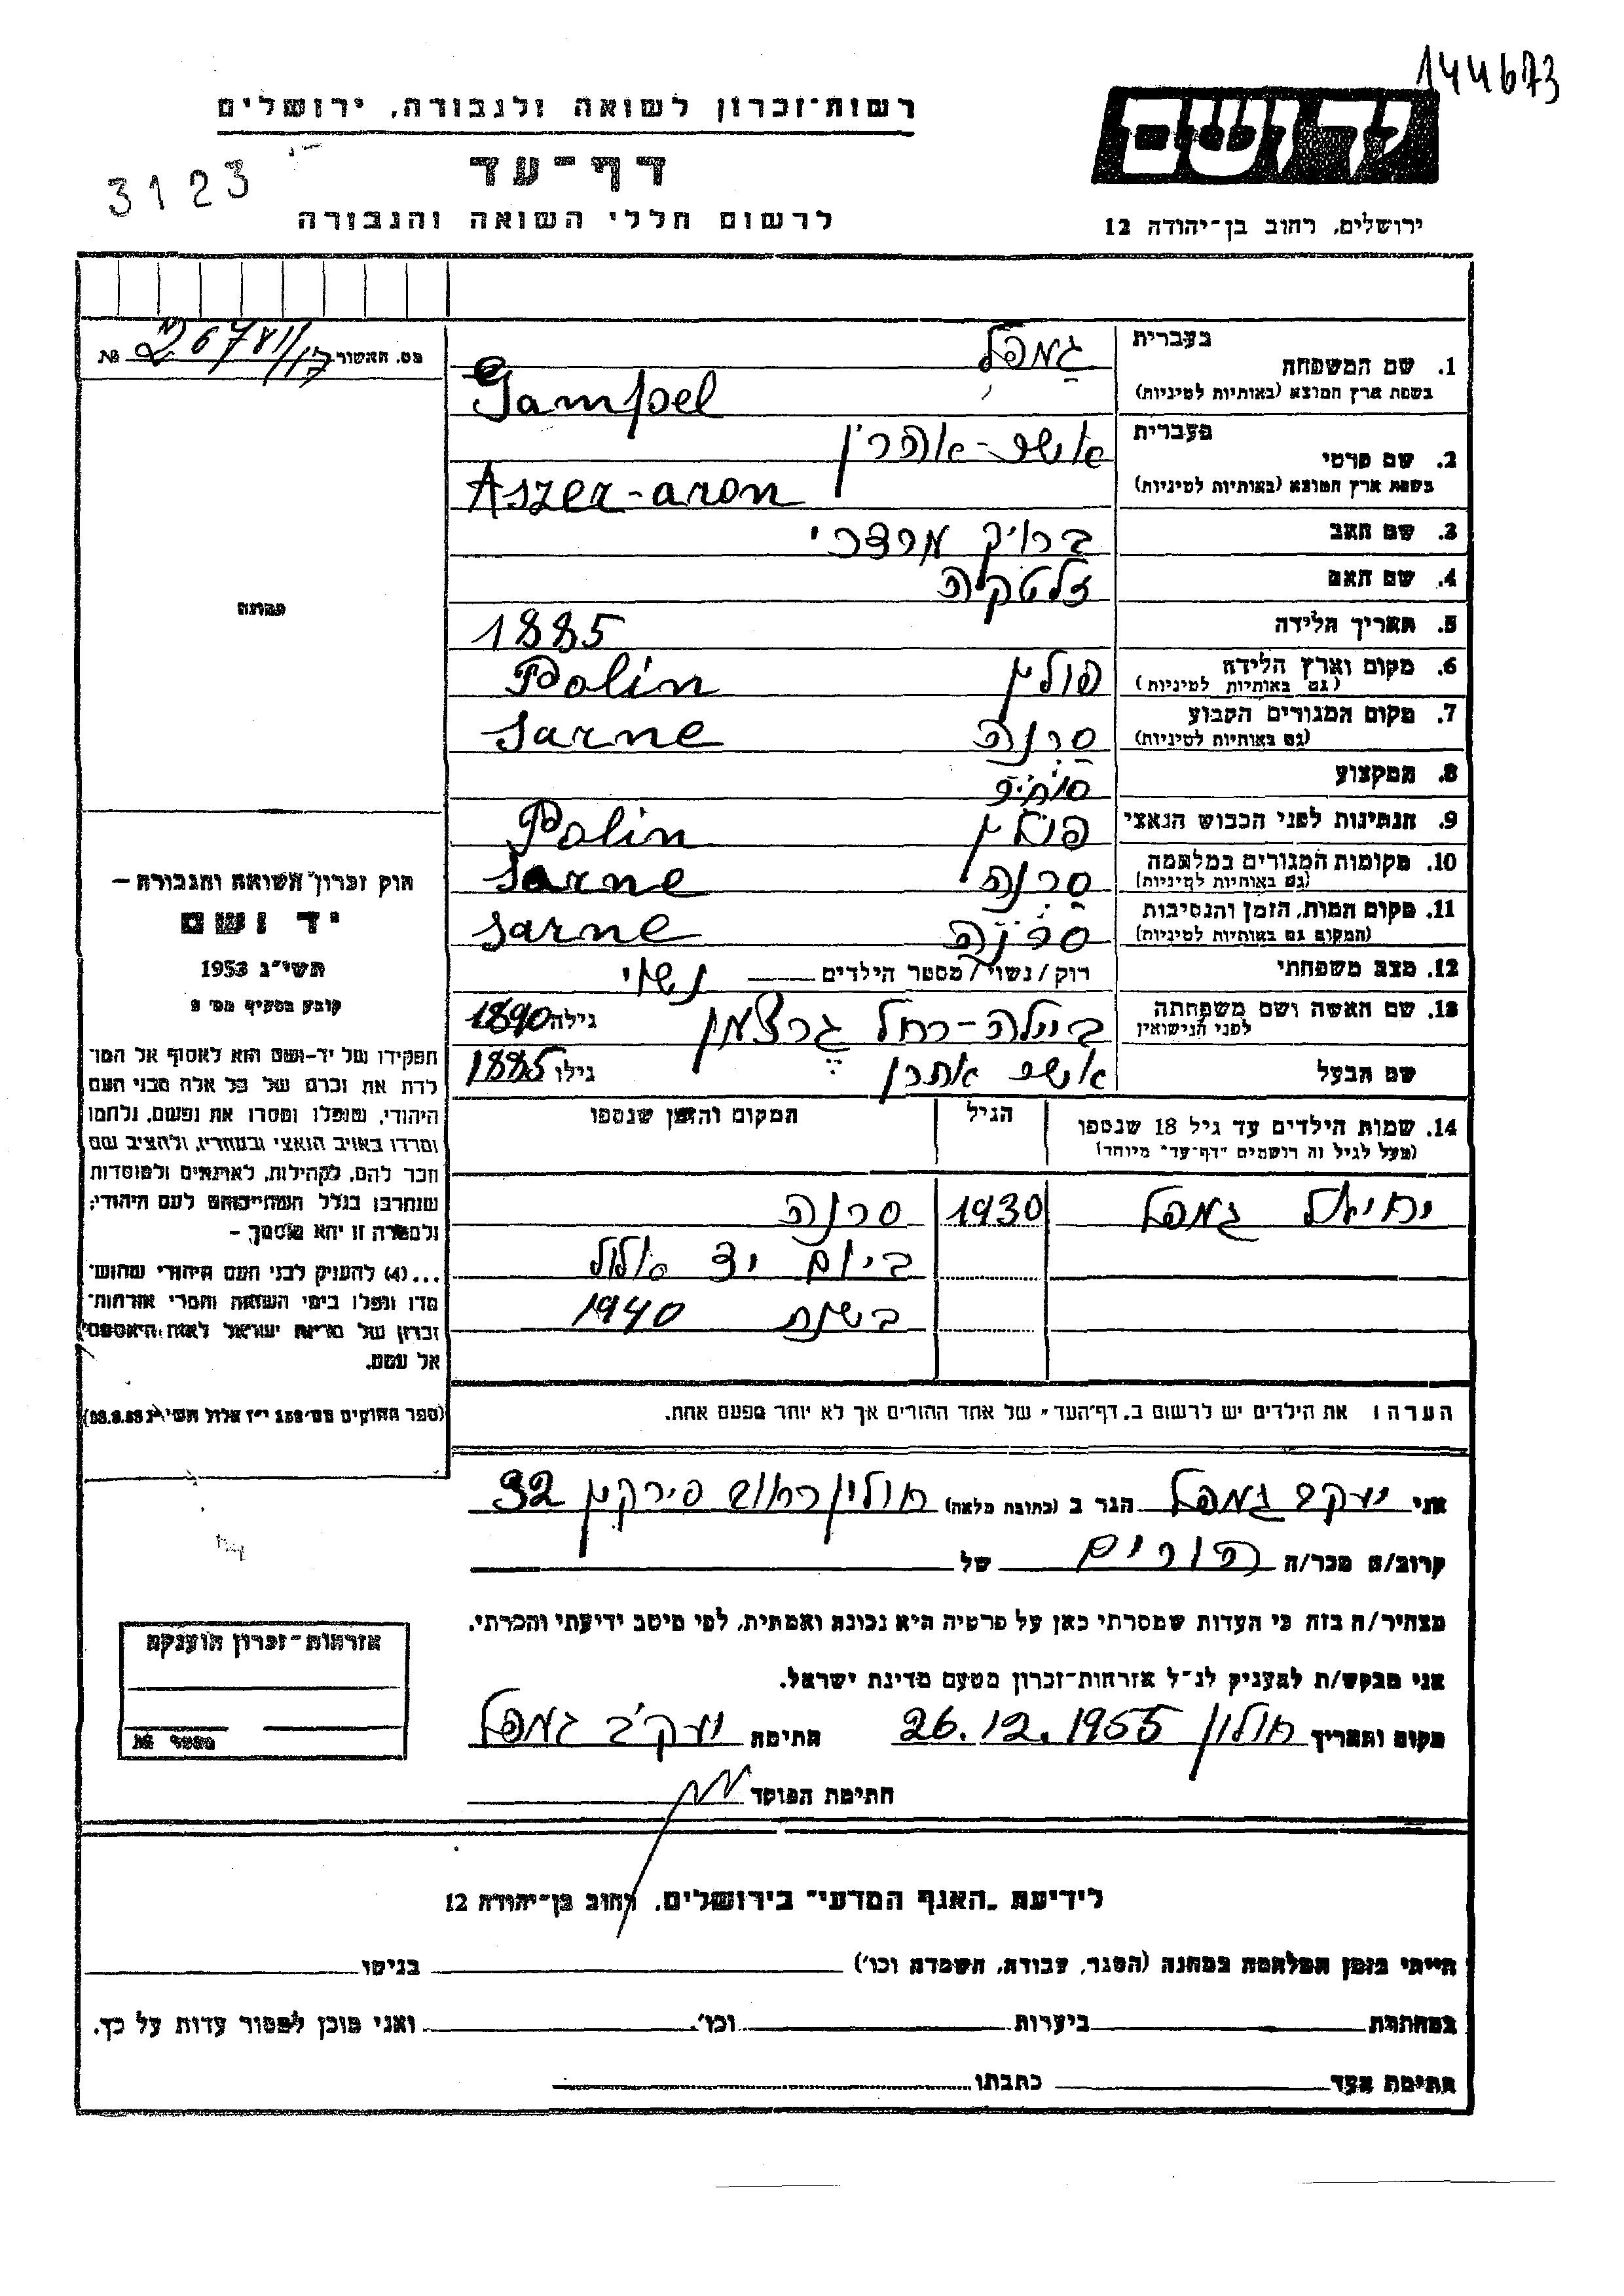 144673
יד ושם
ירושלים, רחוב בן-יהודה 12
רשות-זכרון לשואה ולגבורה, ירושלים
דף-עד
לרשום חללי השואה והגבורה
3123
בעברית
1. שם המשפחה
בשפת ארץ המוצא (באותיות לטיניות)
גמפל
Gampel
בעברית
2. שם פרטי
בשפת ארץ המוצא (באותיות לטיניות)
אשר-אהרון
Aszer-aron
3. שם האב
מרדכי
4. שם האם
זלטקיה
5. תאריך הלידה 1885
6. מקום וארץ הלידה
(גם באותיות לטיניות)
פולין Polin
7. מקום המגורים הקבוע
(גם באותיות לטיניות)
סרנה Sarne
8. המקצוע סוחר
9. הנתינות לפני הכבוש הנאצי פולין Polin
10. מקומות המגורים במלחמה
(גם באותיות לטיניות)
סרנה Sarne
11. מקום המות, הזמן והנסיבות
(המקום גם באותיות לטיניות)
סרנה Sarne
12. מצב משפחתי רוק/נשוי/מספר הילדים נשוי
13. שם האשה ושם משפחתה
לפני הנישואין
ביילה-רחל גרצמן גילה 1890
שם הבעל אשר אהרן גילו 1885
14. שמות הילדים עד גיל 18 שנספו
(מעל לגיל זה רושמים "דף-עד" מיוחד)
הגיל
המקום והזמן שנספו
יחיאל גמפל 1930 סרנה
ביום יד אלול
בשנת 1940
הערה: את הילדים יש לרשום ב"דף-העד" של אחד ההורים אך לא יותר מפעם אחת.
מס. האשור №
תמונה
חוק זכרון השואה והגבורה –
יד ושם
תשי"ג 1953
קובע בסעיף מס' 2
תפקידו של יד-ושם הוא לאסוף אל המו־
לדת את זכרם של כל אלה מבני העם
היהודי, שנפלו ומסרו את נפשם, נלחמו
ומרדו באויב הנאצי ובעוזריו, ולהציב שם
וזכר להם, לקהילות, לארגונים ולמוסדות
שנחרבו בגלל השתייכותם לעם היהודי;
ולמטרה זו יהא מוסמך, –
...(4) להעניק לבני העם היהודי שהוש־
מדו ונפלו בימי השואה והמרי אזרחות־
זכרון של מדינת ישראל לאות היאספם
אל עמם.
(ספר החוקים מס' 132 י"ז אלול תשי"ג 28.8.53)
אני יעקב גמפל הגר ב (כתובת מלאה) חולון רחוב פירקין 32
קרוב/ה מכר/ה הורים של
מצהיר/ה בזה כי העדות שמסרתי כאן על פרטיה היא נכונה ואמתית, לפי מיטב ידיעתי והכרתי.
אני מבקש/ת להעניק לנ"ל אזרחות-זכרון מטעם מדינת ישראל.
מקום ותאריך חולון 26.12.1955 חתימה יעקב גמפל
חתימת הפוקד
אזרחות-זכרון הוענקה
מספר №
לידיעת "האגף המדעי" בירושלים, רחוב בן-יהודה 12
הייתי בזמן המלחמה במחנה (הסגר, עבודה, השמדה וכו') בגיטו
במחתרת ביערות וכו'. ואני מוכן למסור עדות על כך.
חתימת העד כתבתו